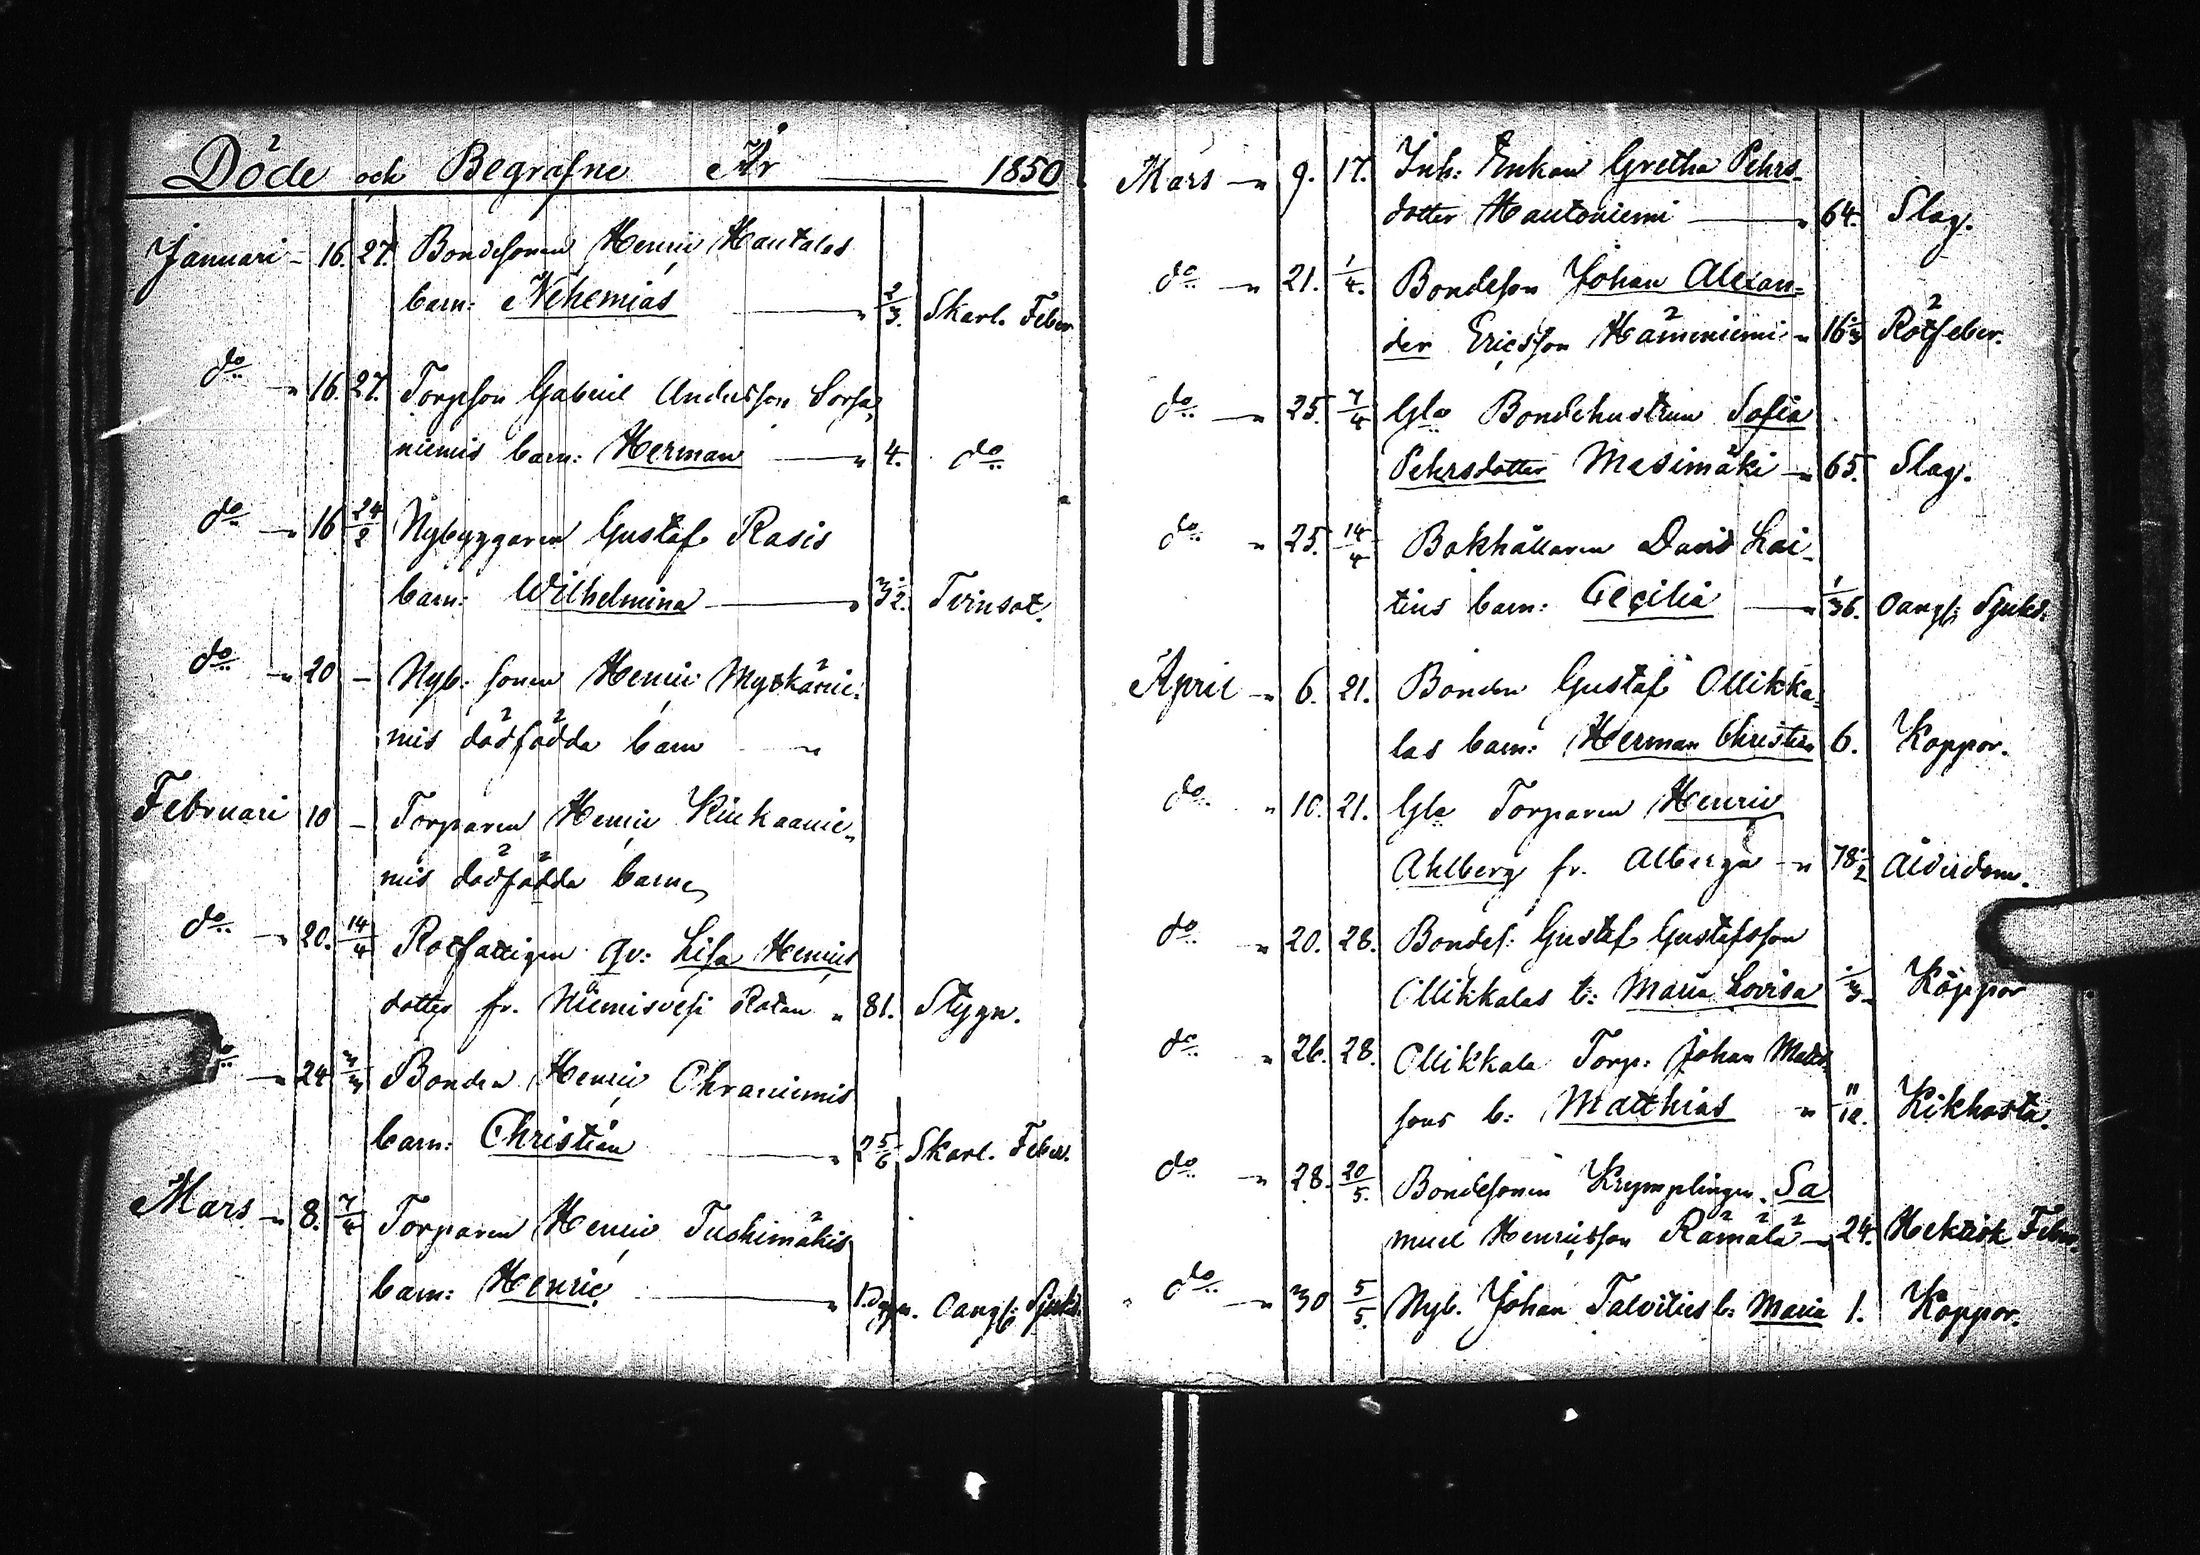 Döde och Begrafne År — 1850
Januari - 16. 27. Bondesonen Henric Hautalas
barn: Nehemias — 2/3. Skarl. Feber
do — 16. 27. Torpson Gabriel Andersson Sorsa
niemis barn: Herman — 4. do
do — 16 24/2 Nybyggaren Gustaf Rasis
barn: Wilhelmina — 3 1/2. Tvinsot.
do — 20 — Nyb: sonen Henric Myökänie-
mis dödfödda barn
Februari 10 — Torparen Henric Kiukaanie-
mis dödfödda barn
do — 20. 14/4 Rotfattigen Qv: Lisa Henrics
dotter fr. Niemisvesi Rotan 81. Stygn.
do — 24 3/3 Bonden Henric Ohraniemis
barn: Christian — 2 5/6 Skarl. Feber.
Mars — 8. 7/4 Torparen Henric Tuohimäkis
barn: Henric — 1. Dygn. Oangf: Sjukd.
Mars — 9. 17. Inh: Enkan Gretha Pehrs-
dotter Hautoniemi — 64. Slag.
do — 21. 1/4. Bondeson Johan Alexan-
der Ericsson Hämeniemi — 16 1/3 Rötfeber.
do — 25. 7/4 Gla Bondehustrun Sofia
Pehrsdotter Mesimäki — 65. Slag.
do 25. 14/4 Bokhållaren David Lai-
tins barn: Cecilia — 1/36. Oangf: Sjukd.
April — 6. 21. Bonden Gustaf Ollikka-
las barn: Herman Christian 6. Koppor.
do 10. 21. Gla Torparen Henric
Ahlberg fr. Alberga — 78 1/2 Ålderdom.
do — 20. 28. Bondes: Gustaf Gustafsson
Ollikkalas b: Maria Lovisa 1/3 Koppor
do 26. 28. Ollikkala Torp: Johan Matts-
sons b: Matthias 11/12. Kikhosta.
do — 28. 20/5. Bondesonen Krymplingen Sa
muel Henricsson Rämälä — 24. Hektisk Feber.
do — 30 5/5. Nyb. Johan Talvities b: Maria 1. Koppor.